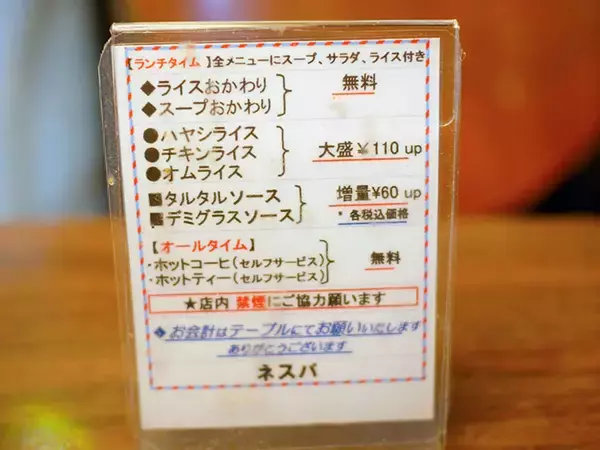 【ランチタイム 】全メニューにスープ、サラダ、ライス付き
◆ライスおかわり
◆スープおかわり
無料
●ハヤシライス
●チキンライス
●オムライス
大盛￥110 up
■タルタルソース
■デミグラスソース
増量¥60 up
* 各税込価格
【オールタイム】
・ホットコーヒ(セルフサービス)
・ホットティー(セルフサービス)
無料
★店内 禁煙にご協力願います
◆お会計はテーブルにてお願いいたします
ありがとうございます
ネスパ